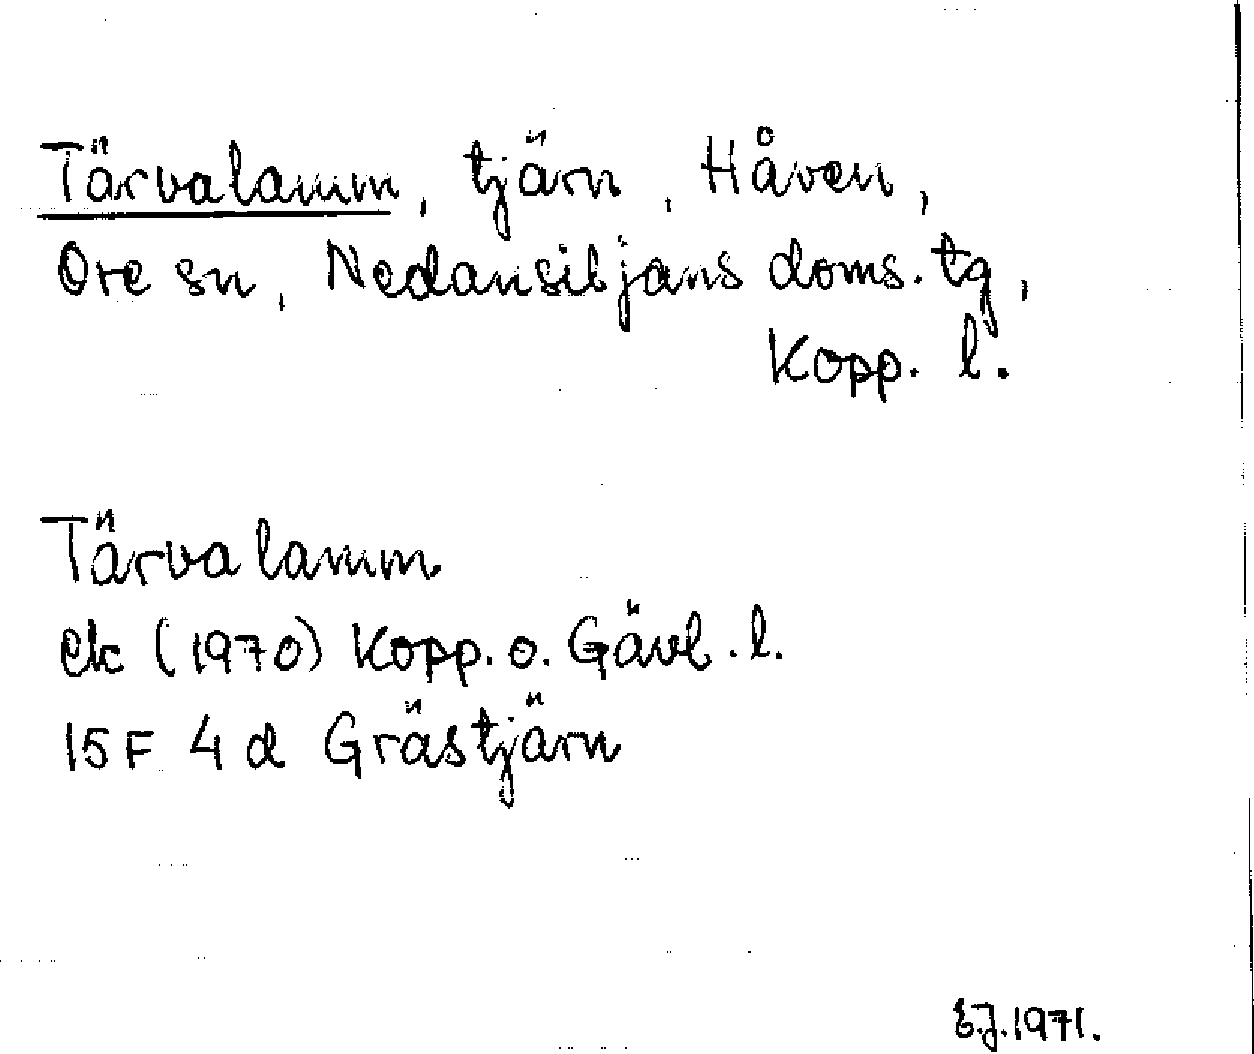 Tärvalamm, tjärn, Håven,
Ore sn, Nedansiljans doms. tg,
Kopp. l.
Tärvalamm
ek (1970) Kopp. o. Gävl. l.
15F 4d Grästjärn
E.J. 1971.